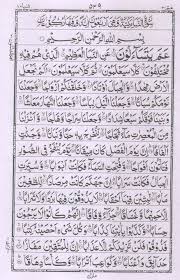 بِسْمِ اللهِ الرَّحْمٰنِ الرَّحِيْمِ
عَمَّ يَتَسَآءَلُوْنَ عَنِ النَّبَاِ الْعَظِيْمِ الَّذِىْ هُمْ فِيْهِ
مُخْتَلِفُوْنَ كَلَّا سَيَعْلَمُوْنَ ثُمَّ كَلَّا سَيَعْلَمُوْنَ اَلَمْ نَجْعَلِ
الْاَرْضَ مِهٰدًا وَّالْجِبَالَ اَوْتَادًا وَّخَلَقْنٰكُمْ اَزْوَاجًا وَّجَعَلْنَا
نَوْمَكُمْ سُبَاتًا وَّجَعَلْنَا الَّيْلَ لِبَاسًا وَّجَعَلْنَا النَّهَارَ مَعَاشًا
وَّبَنَيْنَا فَوْقَكُمْ سَبْعًا شِدَادًا وَّجَعَلْنَا سِرَاجًا وَّهَّاجًا وَّاَنْزَلْنَا
مِنَ الْمُعْصِرٰتِ مَآءً ثَجَّاجًا لِّنُخْرِجَ بِهٖ حَبًّا وَّنَبَاتًا وَّجَنّٰتٍ
اَلْفَافًا اِنَّ يَوْمَ الْفَصْلِ كَانَ مِيْقَاتًا يَّوْمَ يُنْفَخُ فِى الصُّوْرِ
فَتَاْتُوْنَ اَفْوَاجًا وَّفُتِحَتِ السَّمَآءُ فَكَانَتْ اَبْوَابًا وَّسُيِّرَتِ
الْجِبَالُ فَكَانَتْ سَرَابًا اِنَّ جَهَنَّمَ كَانَتْ مِرْصَادًا لِّلطَّاغِيْنَ
مَاٰبًا لّٰبِثِيْنَ فِيْهَآ اَحْقَابًا لَا يَذُوْقُوْنَ فِيْهَا بَرْدًا وَّلَا
شَرَابًا اِلَّا حَمِيْمًا وَّغَسَّاقًا جَزَآءً وِّفَاقًا اِنَّهُمْ كَانُوْا لَا يَرْجُوْنَ
حِسَابًا وَّكَذَّبُوْا بِاٰيٰتِنَا كِذَّابًا وَكُلَّ شَىْءٍ اَحْصَيْنٰهُ كِتٰبًا
فَذُوْقُوْا فَلَنْ نَّزِيْدَكُمْ اِلَّا عَذَابًا اِنَّ لِلْمُتَّقِيْنَ مَفَازًا